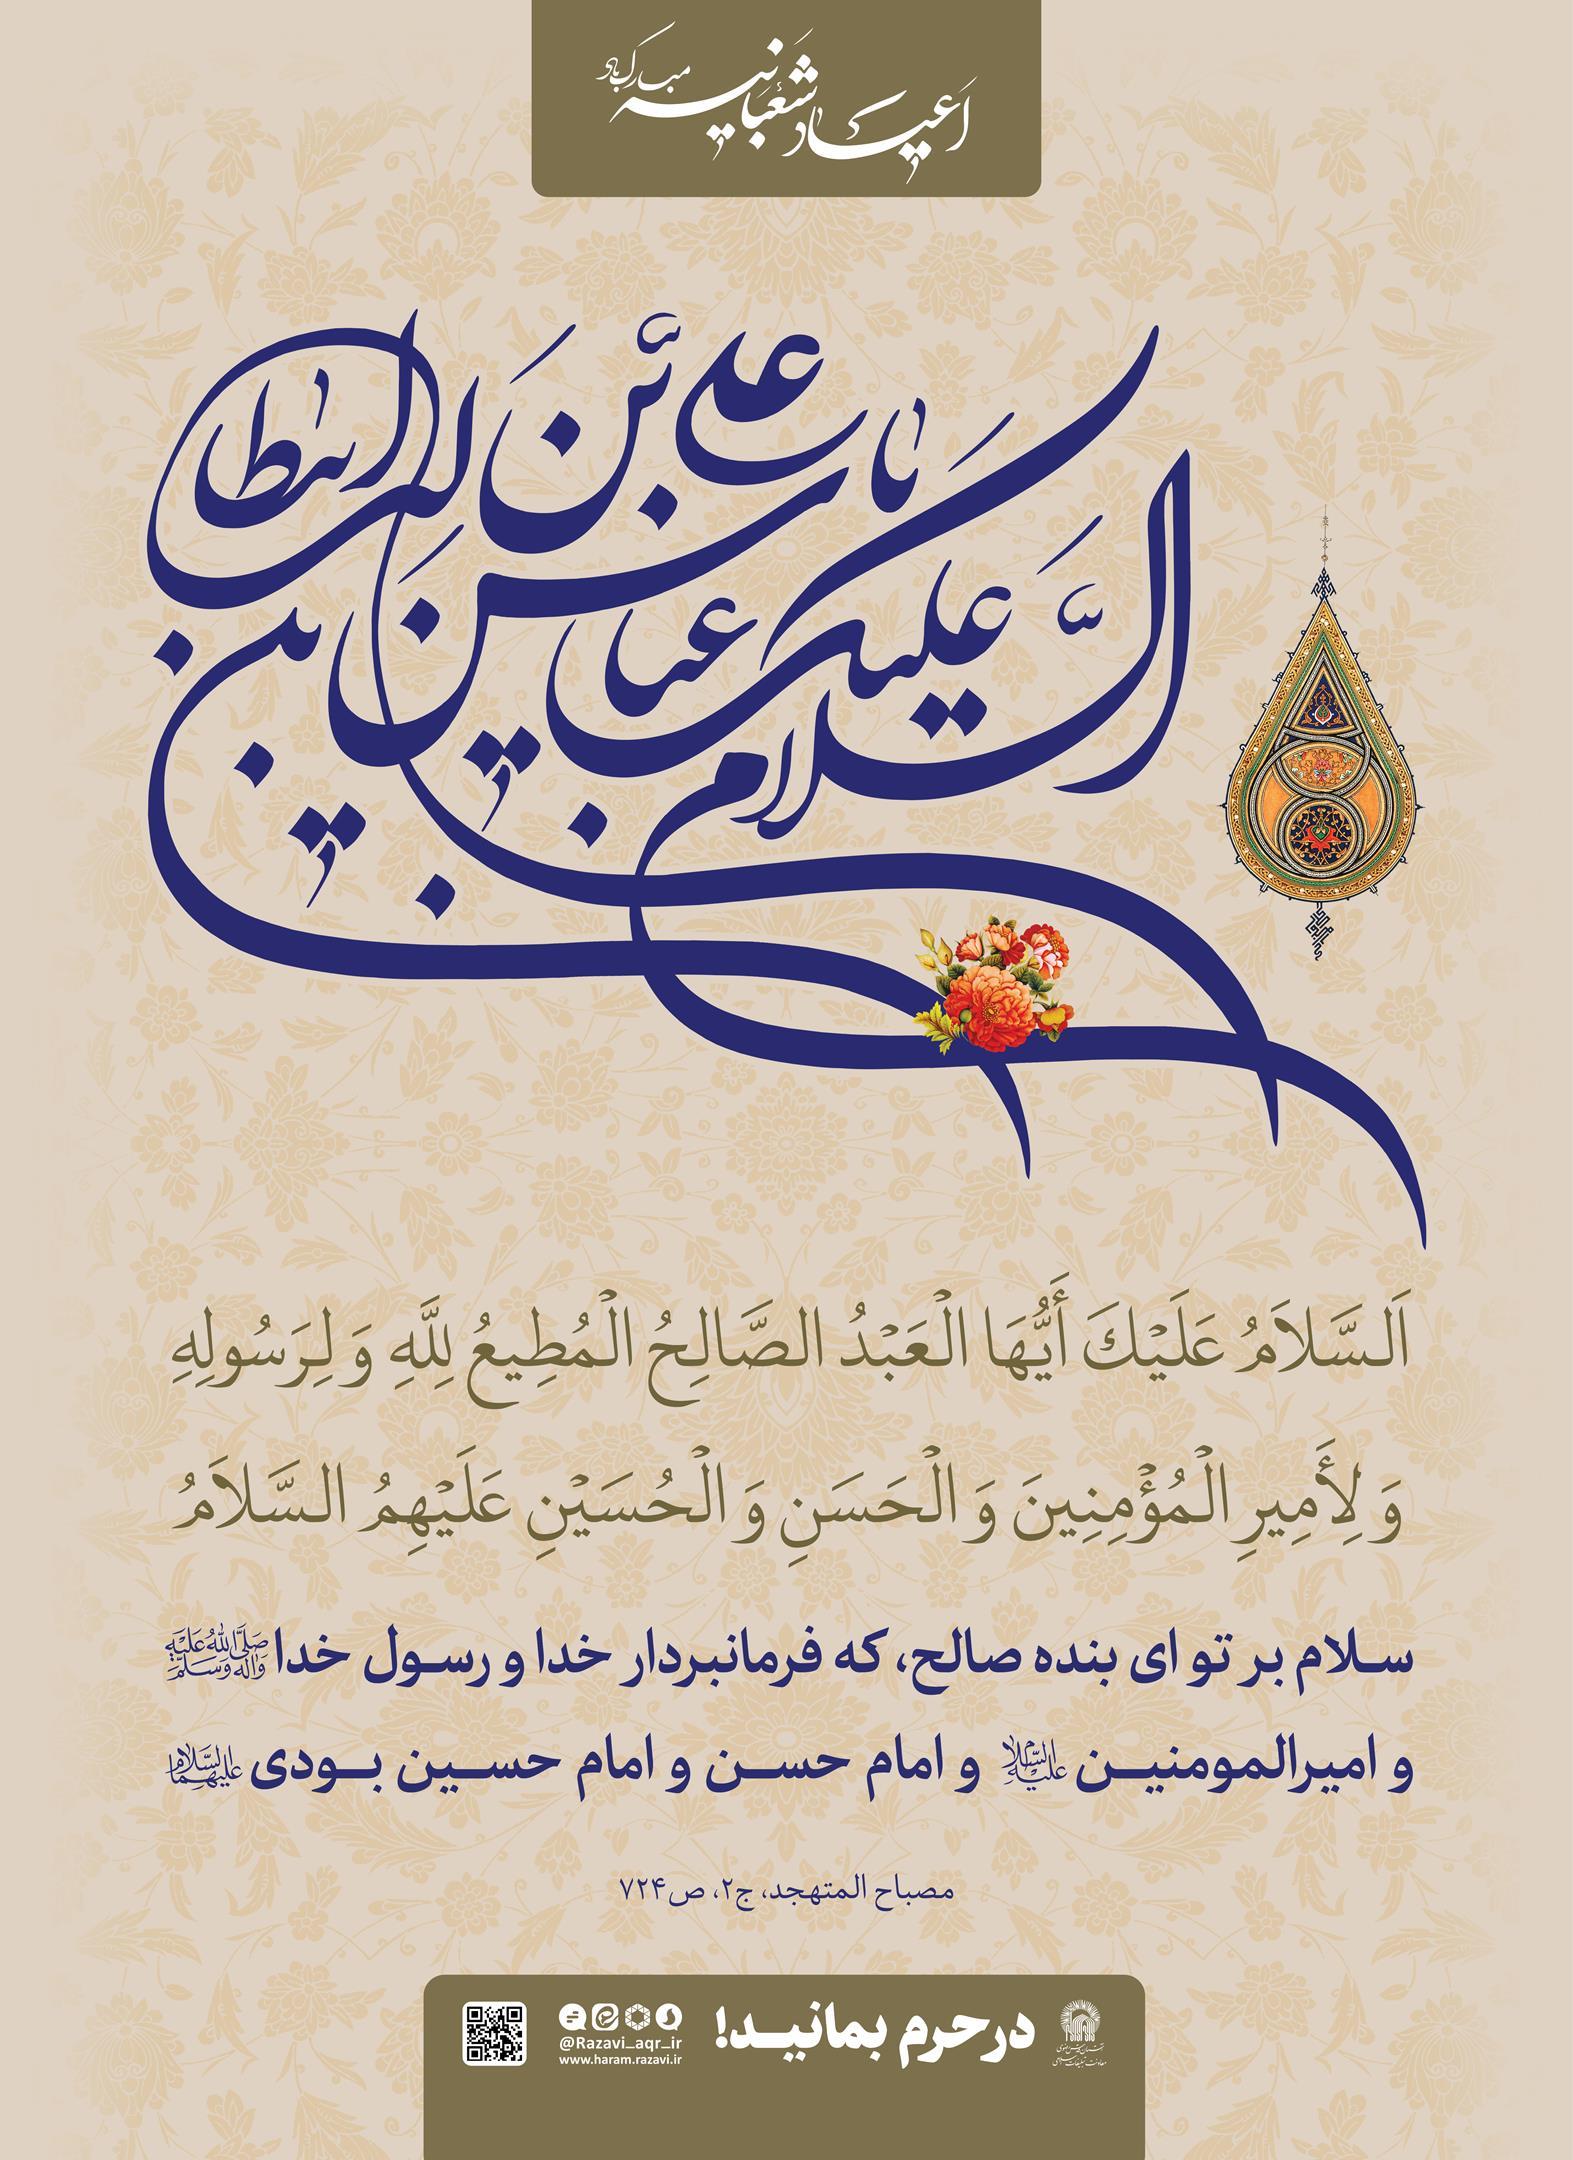 اعیاد شعبانیه مبارک باد
السلام علیک یا عباس بن علی بن ابیطالب
اَلسَّلاَمُ عَلَيْكَ أَيُّهَا الْعَبْدُ الصَّالِحُ الْمُطِيعُ لِلَّهِ وَ لِرَسُولِهِ
وَ لِأَمِيرِ الْمُؤْمِنِينَ وَ الْحَسَنِ وَ الْحُسَيْنِ عَلَيْهِمُ السَّلاَمُ
سلام بر تو ای بنده صالح، که فرمانبردار خدا و رسول خدا صَلَّی اللهُ عَلَیْهِ وَآلِهِ وَسَلَّمَ
و امیرالمومنین علیه السلام و امام حسن و امام حسین بودی علیهما السلام
مصباح المتهجد، ج۲، ص۷۲۴
در حرم بمانید!
@Razavi_aqr_ir
www.haram.razavi.ir